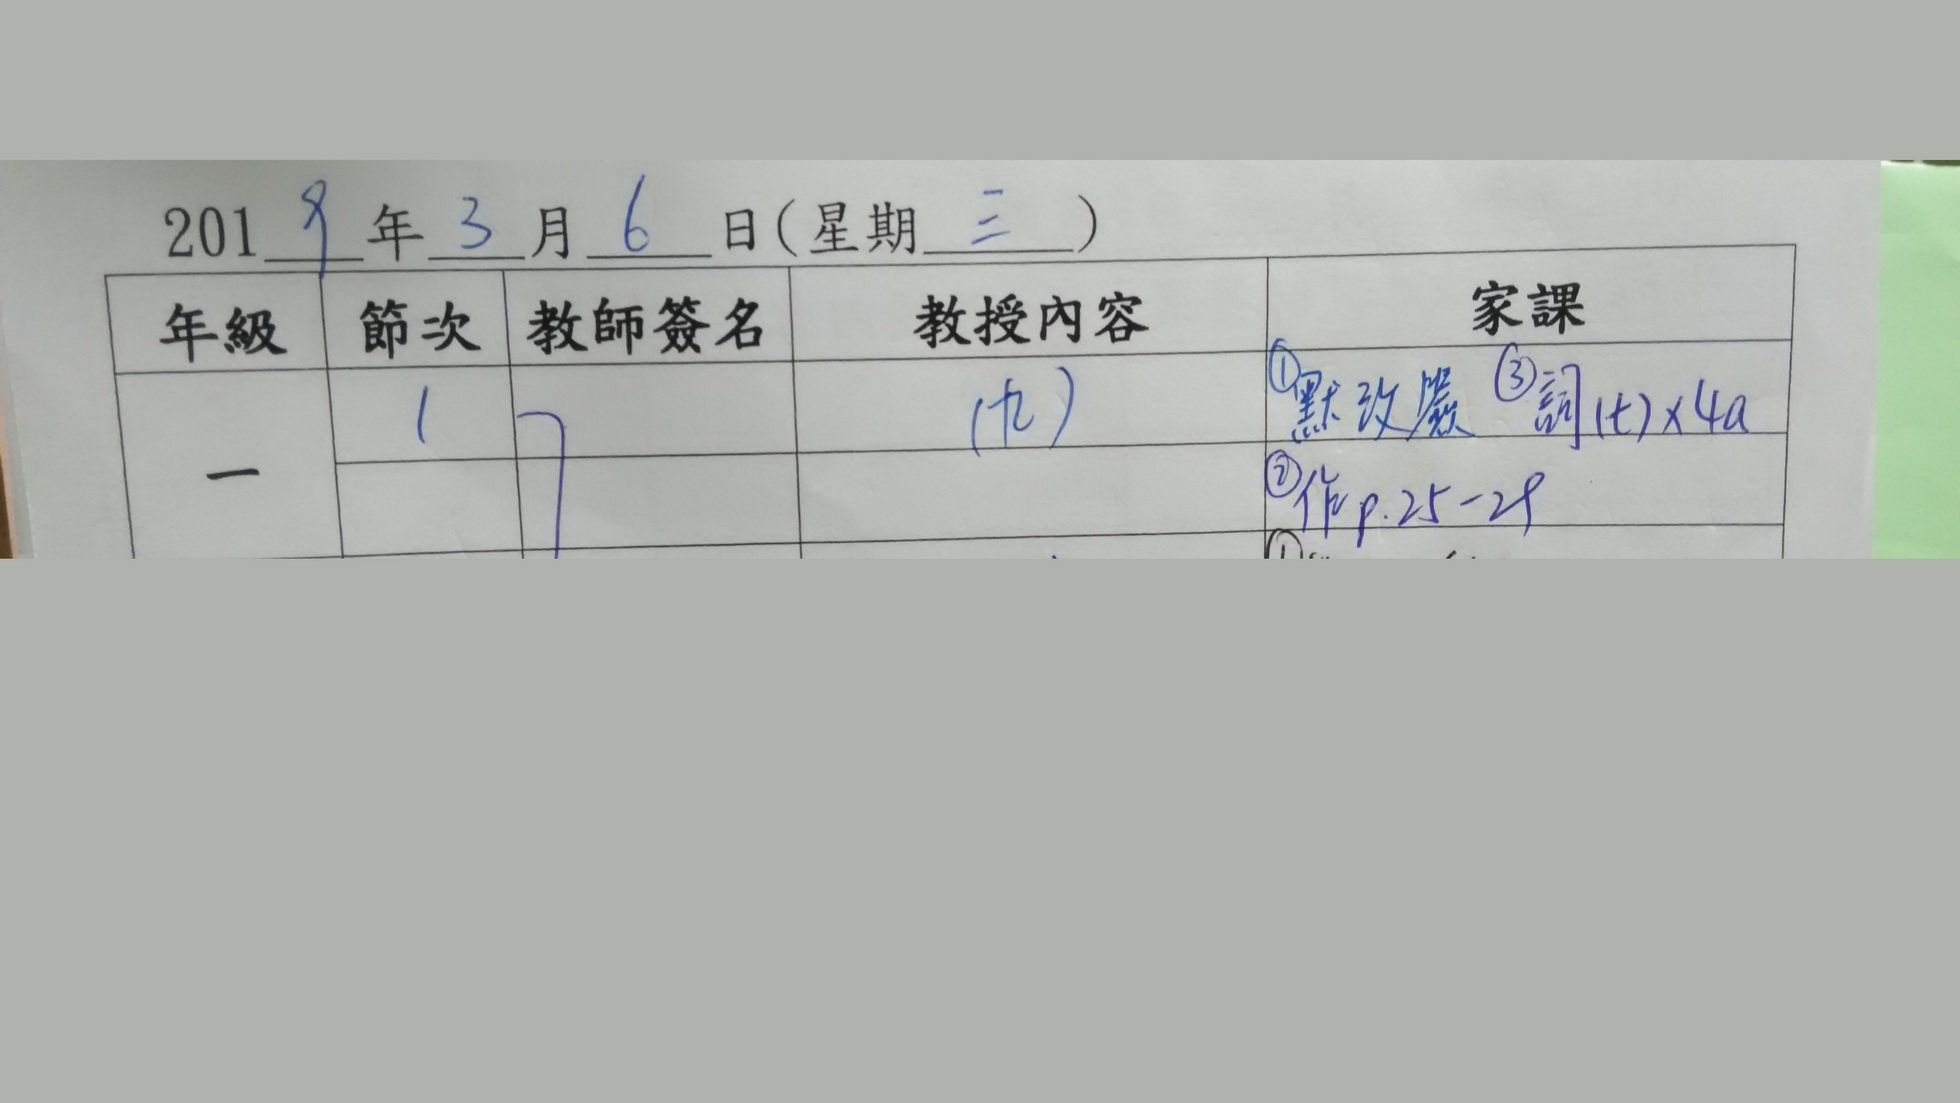 2019年3月6日(星期三)
年級 節次 教師簽名 教授內容 家課
一 1 (九) ①默改簽 ③詞(七)x4a
②作p.25-29